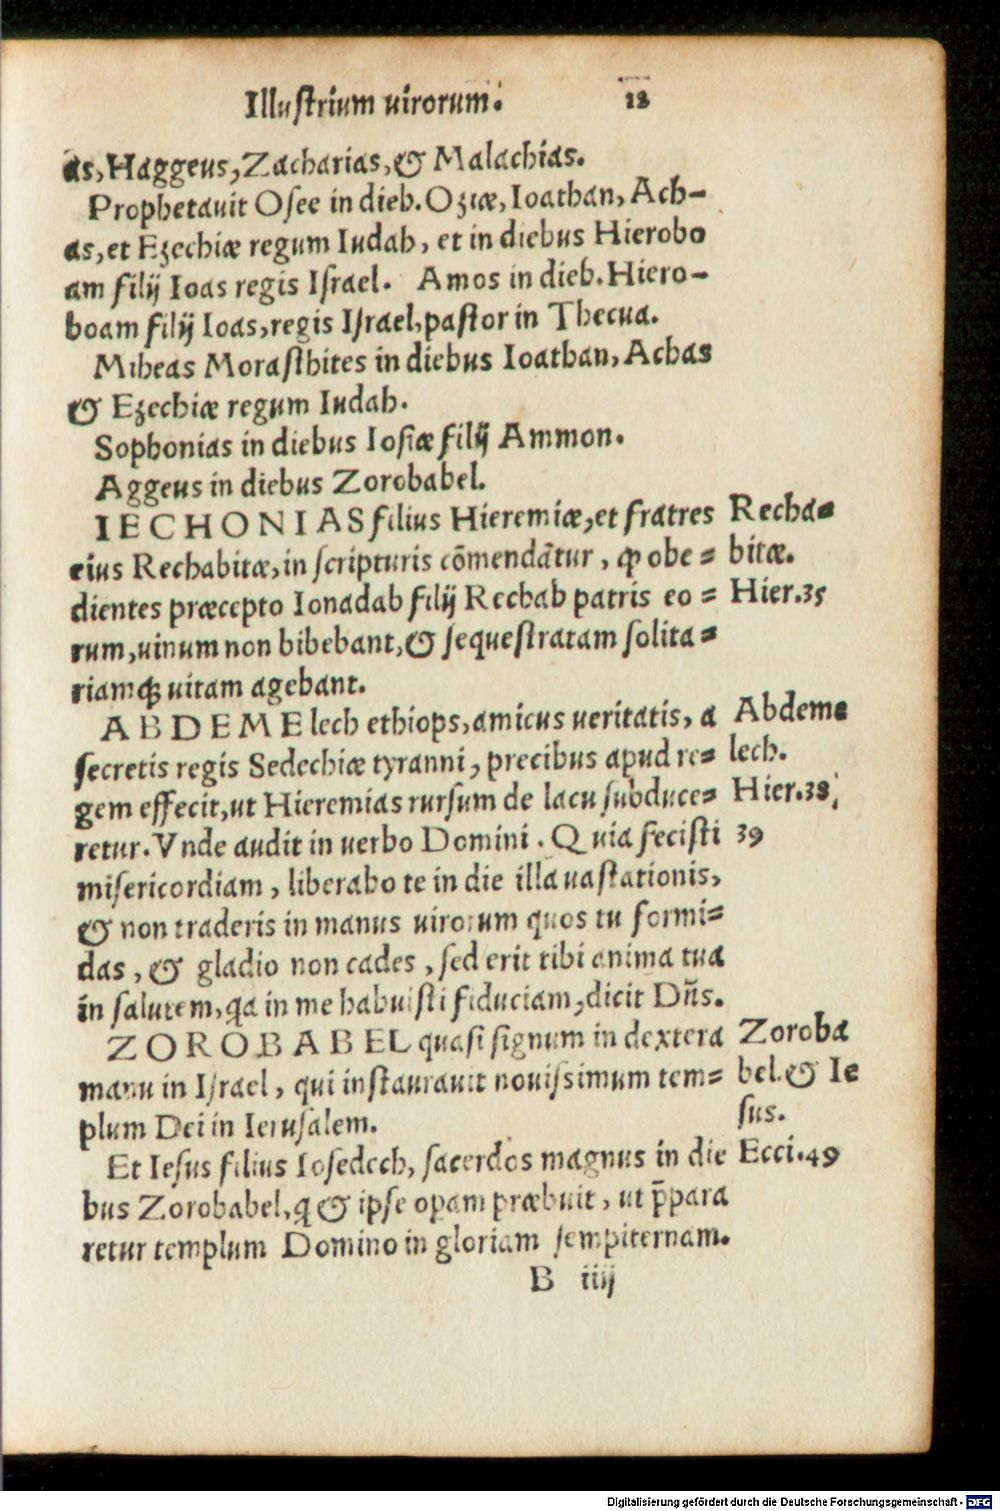 Illustrium uirorum. 12
as, Haggeus, Zacharias, & Malachias.
Prophetauit Osee in dieb. Oziæ, Ioathan, Ach-
as, et Ezechiæ regum Iudah, et in diebus Hierobo
am filij Ioas regis Israel. Amos in dieb. Hiero-
boam filij Ioas, regis Israel, pastor in Thecua.
Miheas Morasthites in diebus Ioathan, Achas
& Ezechiæ regum Iudah.
Sophonias in diebus Iosiæ filij Ammon.
Aggeus in diebus Zorobabel.
IECHONIAS filius Hieremiæ, et fratres
eius Rechabitæ, in scripturis cōmendātur, ꝙ obe=
dientes præcepto Ionadab filij Rechab patris eo=
rum, uinum non bibebant, & sequestratam solita=
riamqꝫ uitam agebant.
Recha=
bitæ.
Hier.35
ABDEMElech ethiops, amicus ueritatis, a
secretis regis Sedechiæ tyranni, precibus apud re=
gem effecit, ut Hieremias rursum de lacu subduce=
retur. Vnde audit in uerbo Domini. Quia fecisti
misericordiam, liberabo te in die illa uastationis,
& non traderis in manus uirorum quos tu formi=
das, & gladio non cades, sed erit tibi anima tua
in salutem, qa in me habuisti fiduciam, dicit Dñs.
Abdeme
lech.
Hier.38,
39
ZOROBABEL quasi signum in dextera
manu in Israel, qui instaurauit nouissimum tem=
plum Dei in Ierusalem.
Et Iesus filius Iosedech, sacerdos magnus in die
bus Zorobabel, q & ipse opam præbuit, ut p̄para
retur templum Domino in gloriam sempiternam.
Zoroba
bel. & Ie
sus.
Ecci.49
B iiij
Digitalisierung gefördert durch die Deutsche Forschungsgemeinschaft - DFG